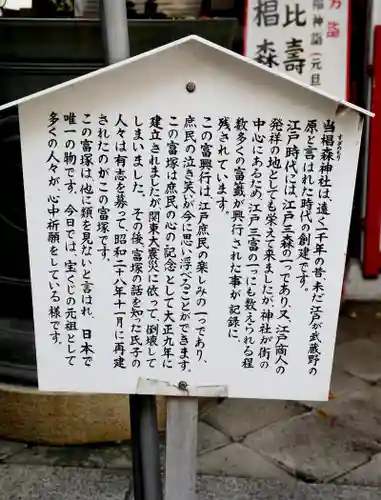 当椙森神社は、遠く一千年の昔、未だ江戸が武蔵野の
すぎのもり
原と言はれた時代の創建です。
江戸時代には、江戸三森の一つであり、又、江戸商人の
発祥の地としても栄えて来ましたが、神社が街の
中心にあるため、江戸三富の一つにも数えられる程
数多くの富籤が興行された事が記録に、
残されています。
この富興行は、江戸庶民の楽しみの一つであり、
庶民の泣き笑いが今に思い浮べることができます。
この富塚は庶民の心の記念として大正九年に
建立されましたが関東大震災に依って、倒壊して
しまいました。その後、富塚の話を知った氏子の
人々は有志を募って、昭和二十八年十一月に再建
されたのがこの富塚です。
この富塚は、他に類を見ないと言はれ、日本で
唯一の物です。今日では、宝くじの元祖として
多くの人々が、心中祈願をしている様です。
方詣
福神詣(元旦
椙森
比寿